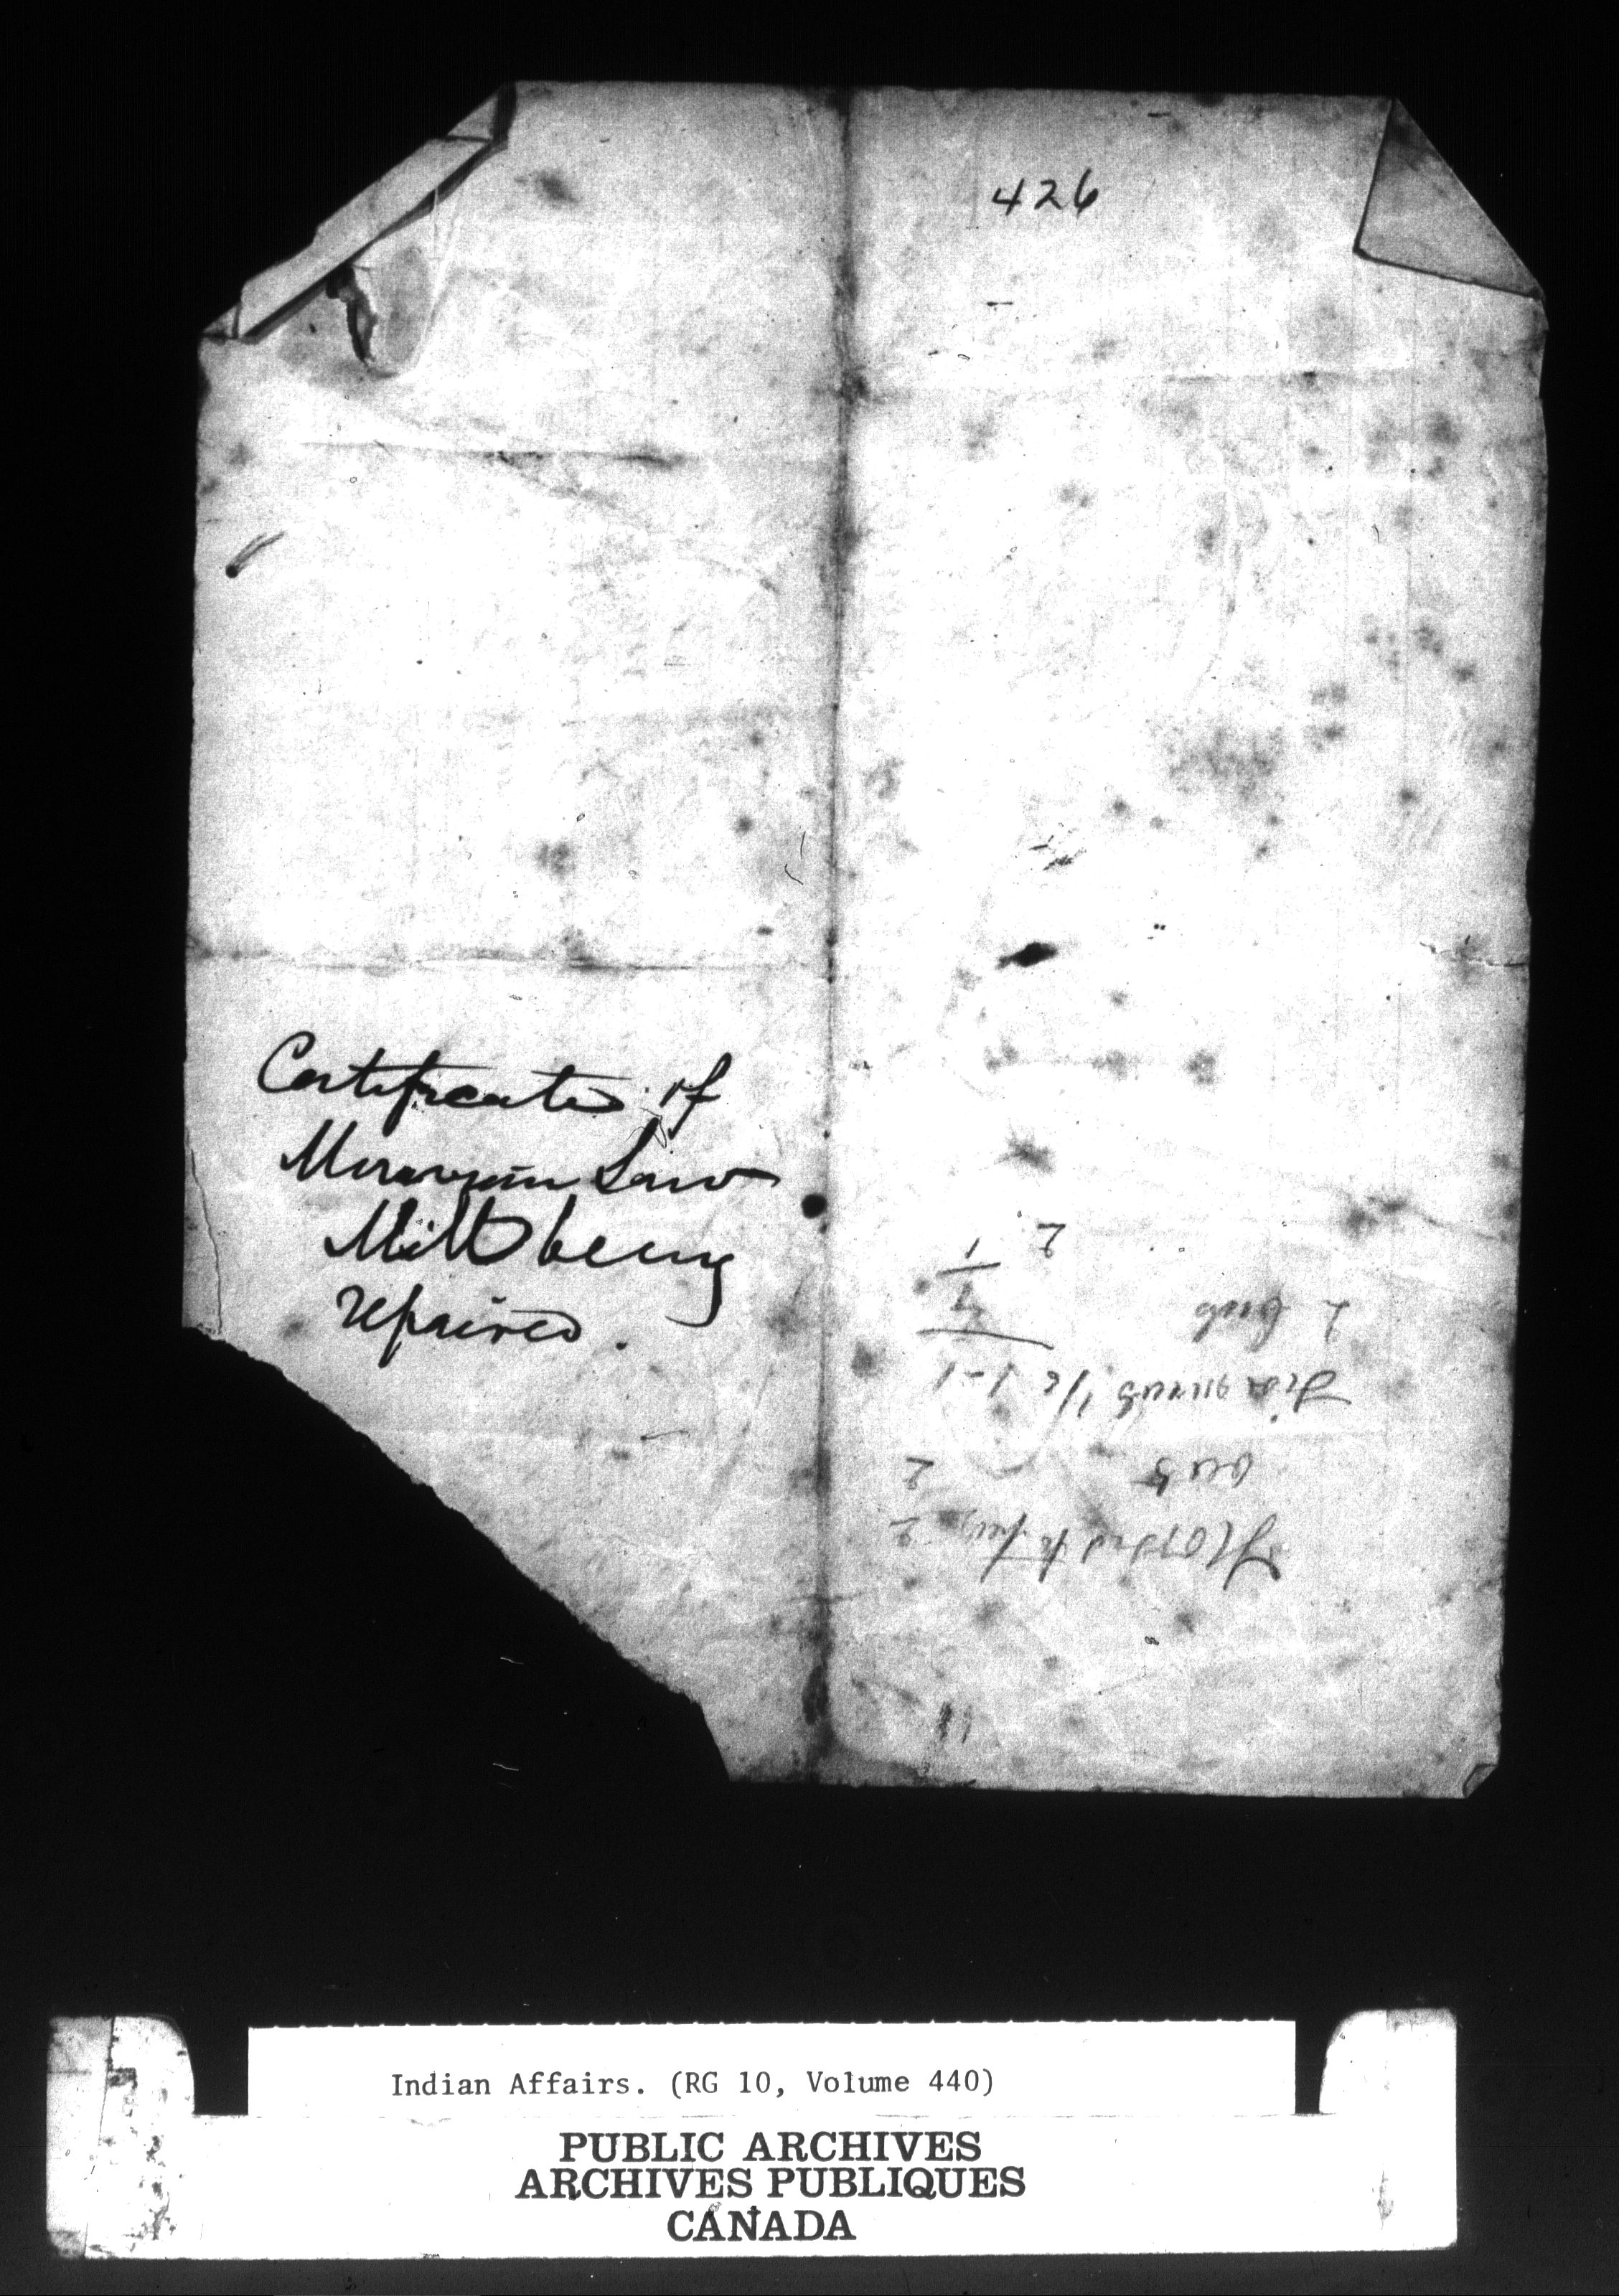 426
Certificate of
Moravian Saw
Mill being
repaired.
2
2
1/2 1-1
2
4
1
2
Indian Affairs. (RG 10, Volume 440)
PUBLIC ARCHIVES
ARCHIVES PUBLIQUES
CANADA